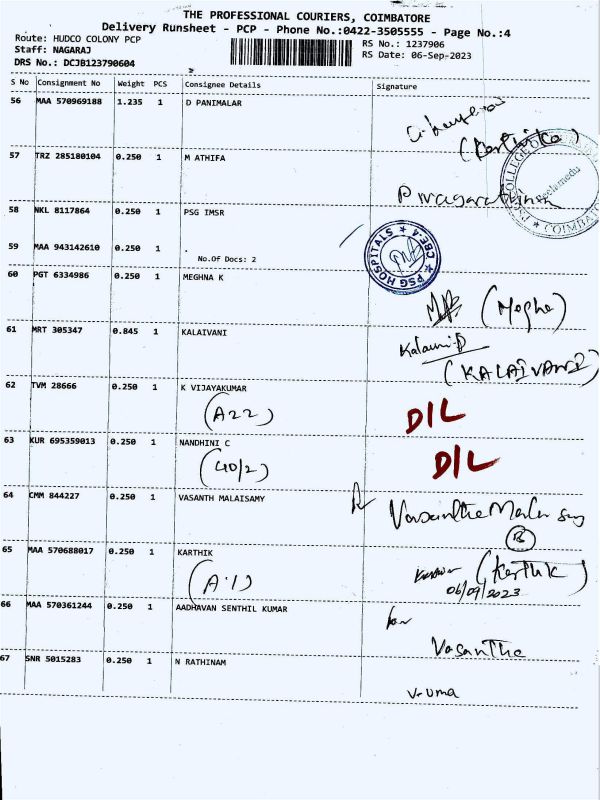 THE PROFESSIONAL COURIERS, COIMBATORE
Delivery Runsheet - PCP - Phone No.:0422-3505555 - Page No.:4
Route: HUDCO COLONY PCP
RS No.: 1237906
Staff: NAGARAJ
RS Date: 06-Sep-2023
DRS No.: DCJB123790604
S No Consignment No Weight PCS Consignee Details Signature
56 MAA 570969188 1.235 1 D PANIMALAR
(Karthika)
57 TRZ 285180104 0.250 1 M ATHIFA
58 NKL 8117864 0.250 1 PSG IMSR
59 MAA 943142610 0.250 1 .
No.Of Docs: 2
PSG HOSPITALS ★ CBE-4 ★
60 PGT 6334986 0.250 1 MEGHNA K
(Megha)
61 MRT 305347 0.845 1 KALAIVANI
(KALAIVANI)
62 TVM 28666 0.250 1 K VIJAYAKUMAR
(A22) D/L
63 KUR 695359013 0.250 1 NANDHINI C
(40/2) D/L
64 CMM 844227 0.250 1 VASANTH MALAISAMY
65 MAA 570688017 0.250 1 KARTHIK
(Karthik)
06/09/2023
66 MAA 570361244 0.250 1 AADHAVAN SENTHIL KUMAR
Vasantha
67 SNR 5015283 0.250 1 N RATHINAM
V-uma